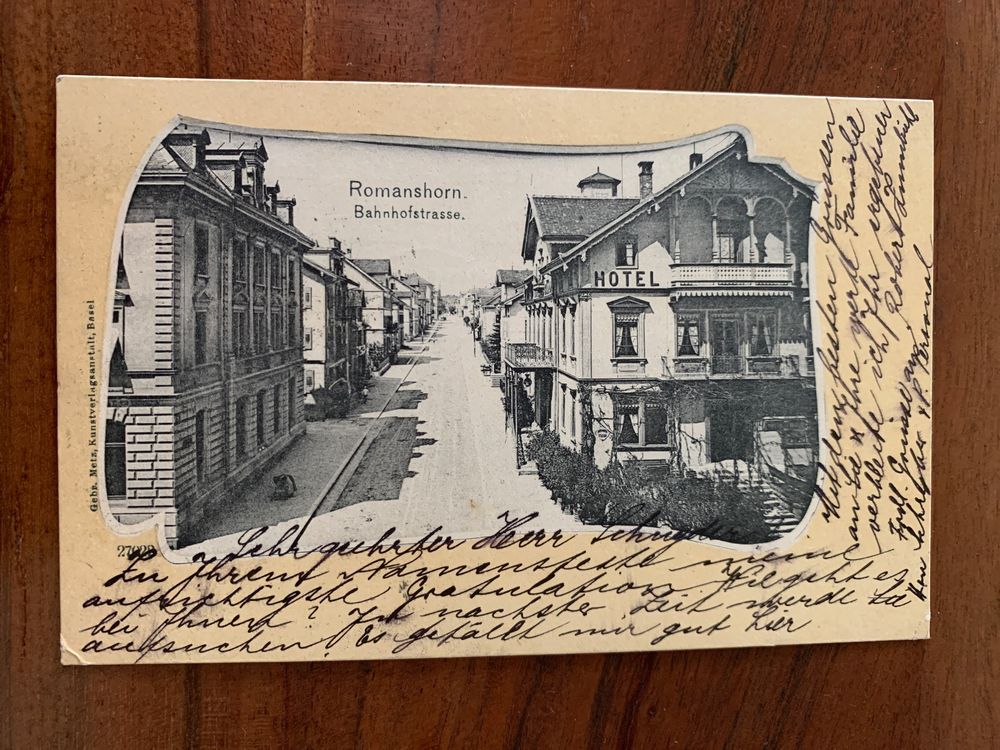 Romanshorn.
Bahnhofstrasse.
HOTEL
Gebr. Metz, Kunstverlagsanstalt, Basel
Sehr geehrter Herr
Zu Ihrem Namensfeste meine
aufrichtigste Gratulation. Wie geht es
bei Ihnen? In nächster Zeit werde Sie
aufsuchen. Es gefällt mir gut hier
Mit den besten Grüssen
an Sie & Ihre werte Familie
verbleibe ich Ihr ergebener